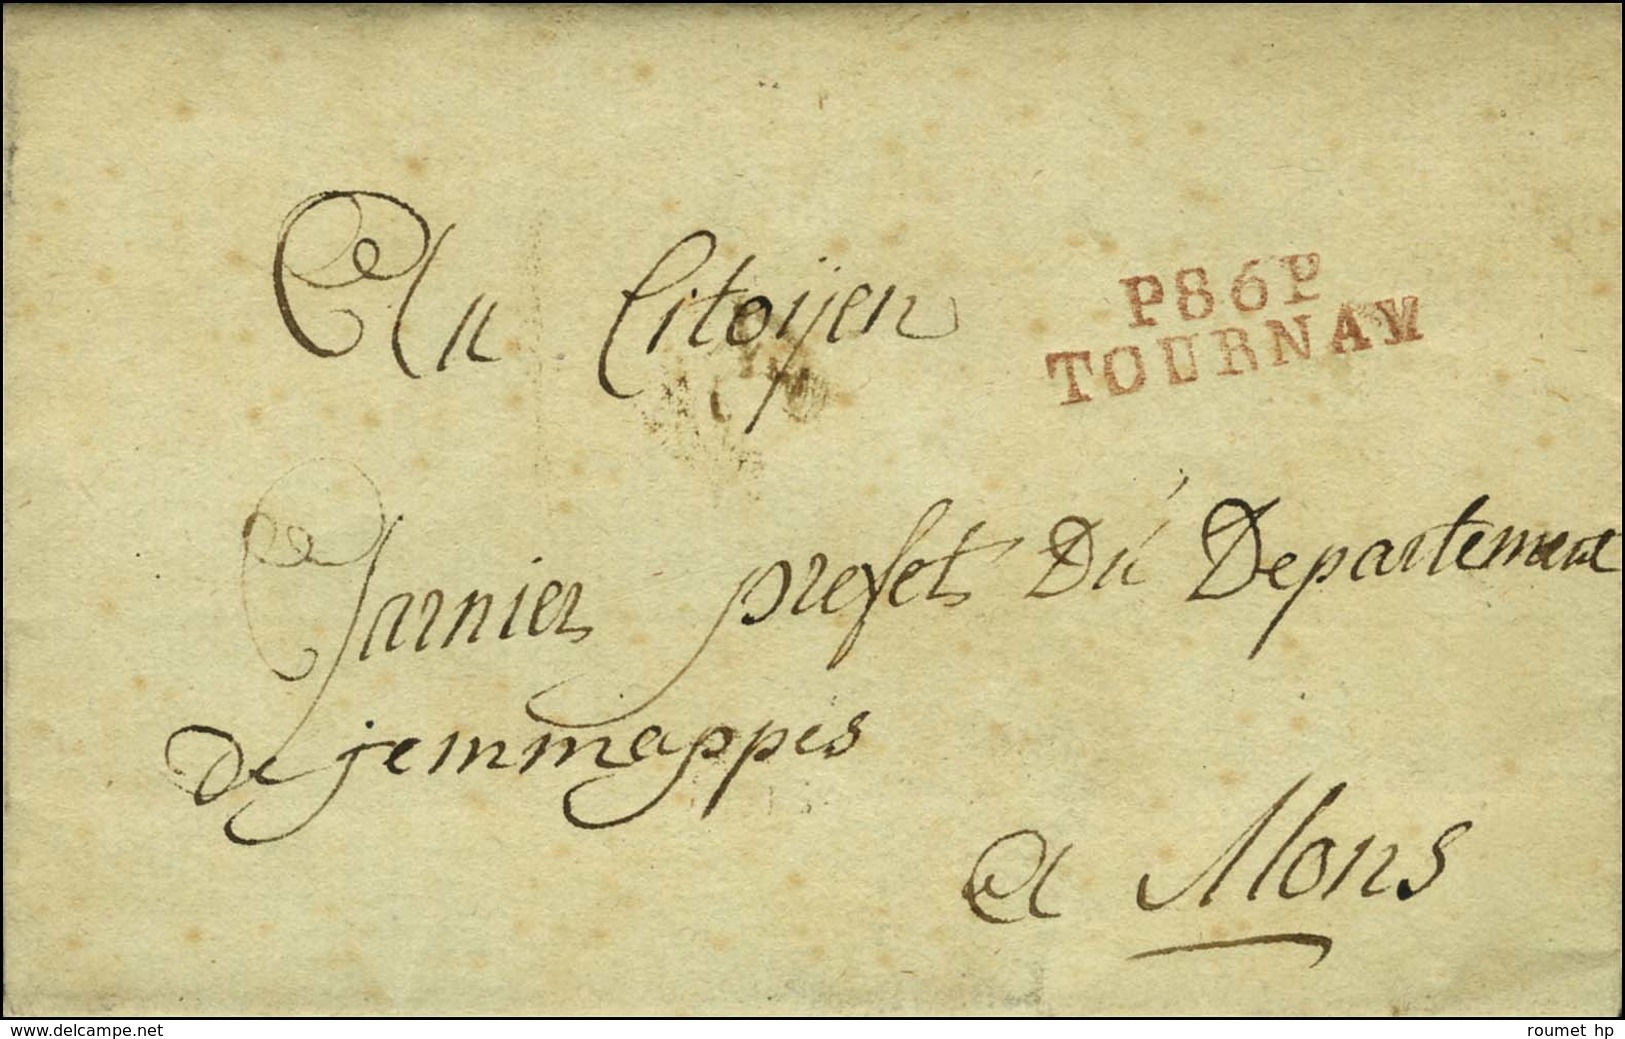 Au Citoijen
P86P
TOURNAY
Garnier prefet Du Departement
De jemmappes
a Mons
www.delcampe.net
roumet hp